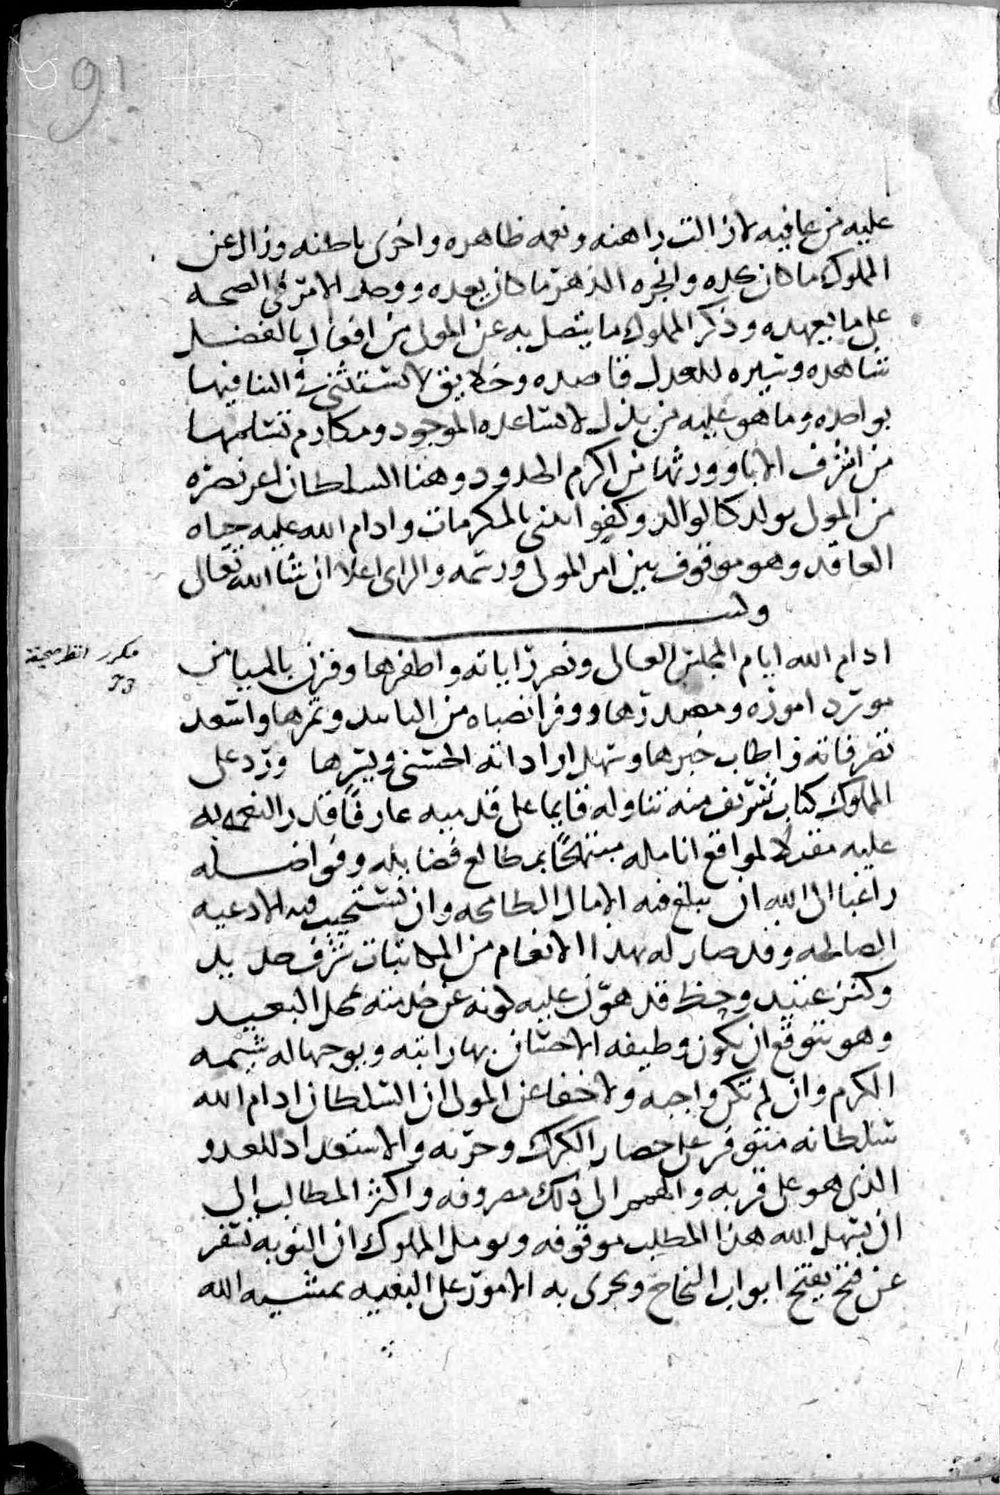 91
عليه من عافيه لا زالت راهنه ونعمه ظاهره واخرى باطنه وزال عن
المملوك ما كان يجده وانجزه الدهر ما كان يعده ووجد الامر في الصحه
على ما يعهده وذكر المملوك ما يتصل به عن المولى من افعال بالفضل
شاهده وسيره للعدل قاصده وخلايق لا تستثنى في الثنا فيها
بواحده وما هو عليه من بذل لا تساعده الموجود ومكارم تسلمها
من اشرف الابا وورثها من اكرم الجدود وهنا السلطان اعز نصره
من المولى بولد كالوالد وكفو ابتنى بالمكرمات وادام الله عليه حياه
العاقد وهو موقوف بين امر المولى ورسمه والراى اعلا ان شا الله تعالى
وله
ادام الله ايام المجلس العالى ونصر راياته واظفرها وقرن بالميامن
مورد اموره ومصدرها ووفر انصباه من الباس وثمرها واسعد
تصرفاته واطاب خبرها وسهل اراداته الحسنى ويسرها ورد على
المملوك كتاب تشريف منه تناوله قايما على قدميه عارفا قدر النعمه به
عليه مقبلا لمواقع انامله مبتهجا بمطالع فضايله وفواضله
راغبا الى الله ان يبلغ فيه الامال الطامحه وان تستجيب فيه الادعيه
الصالحه وقد صار له بهذا الانعام من المكاتبات شرف جديد
وكنز عتيد وحظ قد هون عليه كونه عن خدمته بمحل البعيد
وهو يتوقع ان يكون وظيفه الاحسان بها راتبه ويوجبها له شيمه
الكرم وان لم تكن واجبه ولا خفا عن المولى ان السلطان ادام الله
سلطانه متوفر على حصار الكرك وحربه والاستعداد للعدو
الذى هو على قربه والهمم الى ذلك مصروفه واكثر المطالب الى
ان يسهل الله هذا المطلب موقوفه ويومل المملوك ان النوبه تسفر
عن فتح يفتح ابواب النجاح وتجرى به الامور على البغيه بمشيه الله
مكرر انظر صحيفة
73